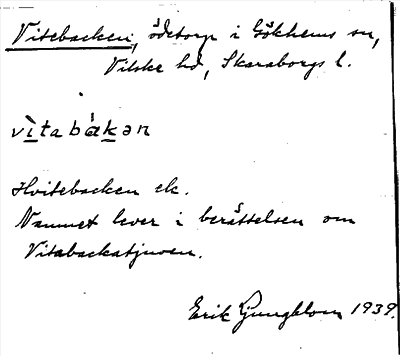 Vitebacken, ödetorp i Gökhems sn,
Vilske hd, Skaraborgs l.
vìtabàkən
Hvitebacken ek.
Namnet lever i berättelsen om
Vitabackatjuven.
Erik Ljungblom 1939.